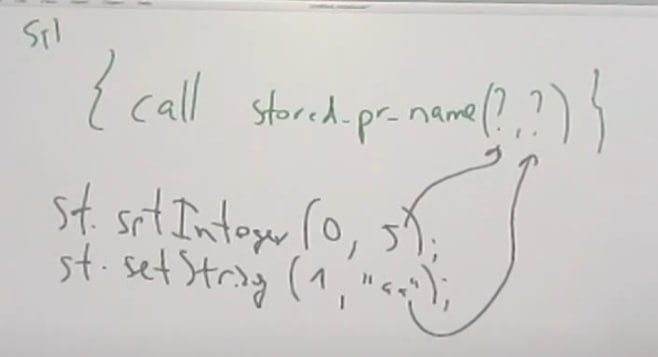 sql
{ call stored_pr_name(?,?) }
st. setInteger (0, 5);
st. setString (1, "